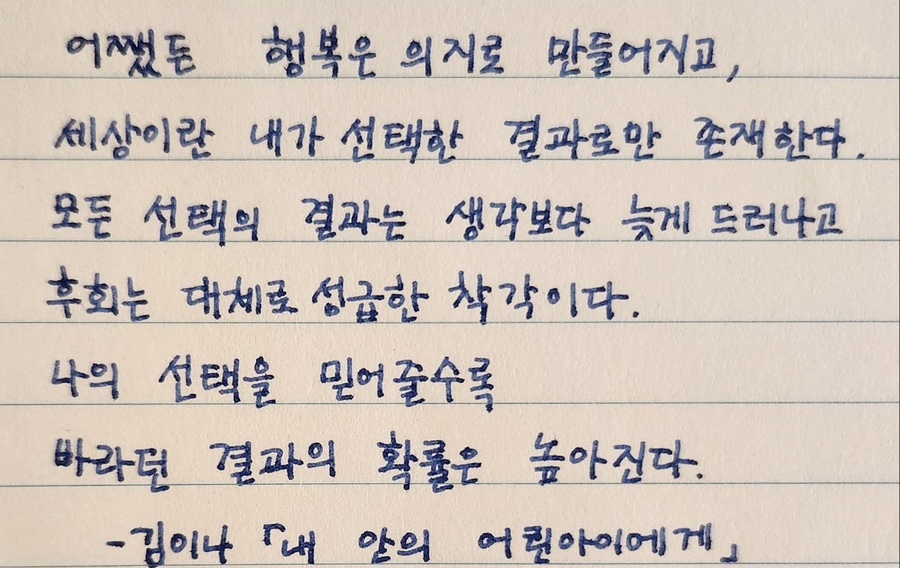 어쨌든 행복은 의지로 만들어지고,
세상이란 내가 선택한 결과로만 존재한다.
모든 선택의 결과는 생각보다 늦게 드러나고
후회는 대체로 성급한 착각이다.
나의 선택을 믿어줄수록
바라던 결과의 확률은 높아진다.
-김이나 「내 안의 어린아이에게」